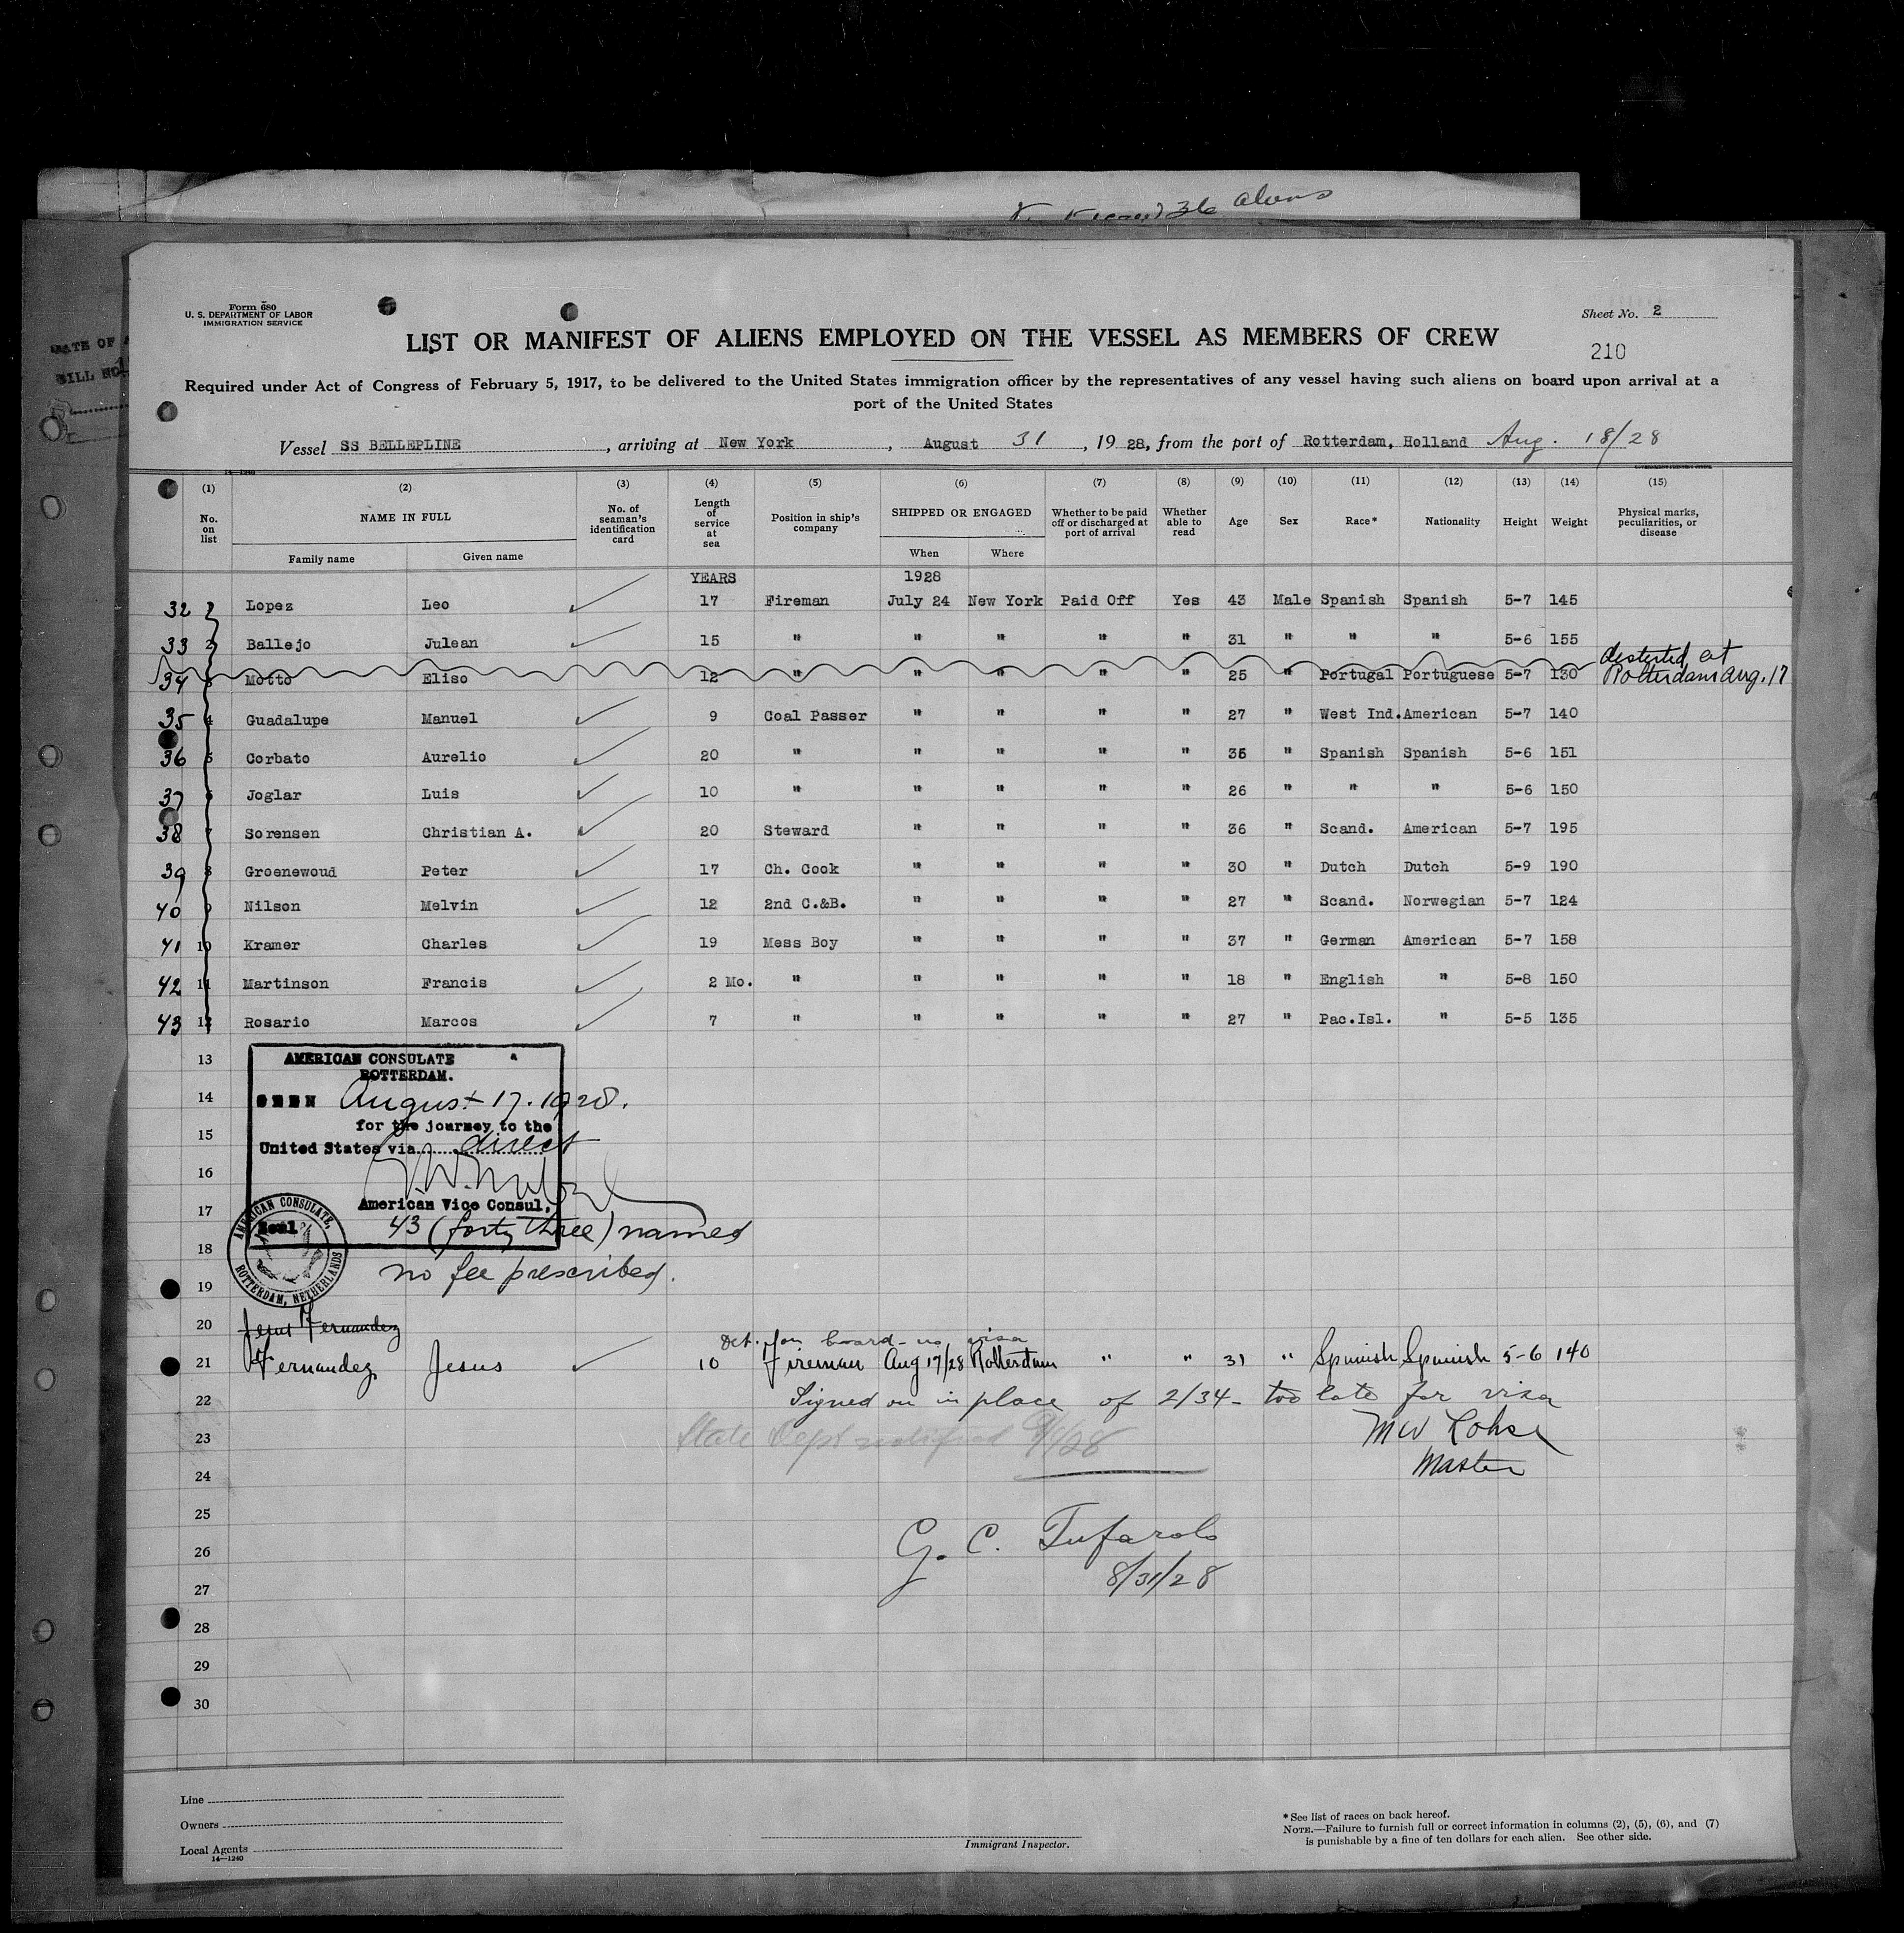 aliens
Form 680
U. S. DEPARTMENT OF LABOR
IMMIGRATION SERVICE
Sheet No. 2
LIST OR MANIFEST OF ALIENS EMPLOYED ON THE VESSEL AS MEMBERS OF CREW
210
Required under Act of Congress of February 5, 1917, to be delivered to the United States immigration officer by the representatives of any vessel having such aliens on board upon arrival at a
port of the United States
Vessel SS BELLEPLINE, arriving at New York, August 31, 1928, from the port of Rotterdam, Holland Aug. 18/28
14-1240
(1) (2) (3) (4) (5) (6) (7) (8) (9) (10) (11) (12) (13) (14) (15)
No. on list NAME IN FULL Family name Given name No. of seaman's identification card Length of service at sea Position in ship's company SHIPPED OR ENGAGED When Where Whether to be paid off or discharged at port of arrival Whether able to read Age Sex Race* Nationality Height Weight Physical marks, peculiarities, or disease
YEARS 1928
32 1 Lopez Leo 17 Fireman July 24 New York Paid Off Yes 43 Male Spanish Spanish 5-7 145
33 2 Ballejo Julean 15 " " " " " 31 " " " 5-6 155
34 3 Motto Eliso 12 " " " " " 25 " Portugal Portuguese 5-7 130 deserted at Rotterdam Aug. 17
35 4 Guadalupe Manuel 9 Coal Passer " " " " 27 " West Ind. American 5-7 140
36 5 Corbato Aurelio 20 " " " " " 35 " Spanish Spanish 5-6 151
37 6 Joglar Luis 10 " " " " " 26 " " " 5-6 150
38 7 Sorensen Christian A. 20 Steward " " " " 36 " Scand. American 5-7 195
39 8 Groenewoud Peter 17 Ch. Cook " " " " 30 " Dutch Dutch 5-9 190
40 9 Nilson Melvin 12 2nd C.&B. " " " " 27 " Scand. Norwegian 5-7 124
41 10 Kramer Charles 19 Mess Boy " " " " 37 " German American 5-7 158
42 11 Martinson Francis 2 Mo. " " " " " 18 " English " 5-8 150
43 12 Rosario Marcos 7 " " " " " 27 " Pac.Isl. " 5-5 135
13
AMERICAN CONSULATE
ROTTERDAM.
14
SEEN August 17. 1928.
for the journey to the
15
United States via direct
16
American Vice Consul,
17
Seal 43 (forty three) names
AMERICAN CONSULATE, ROTTERDAM, NETHERLANDS
18
no fee prescribed.
19
20 Jesus Fernandez
Det. on board - no visa
21 Fernandez Jesus 10 Fireman Aug 17/28 Rotterdam " " 31 " Spanish Spanish 5-6 140
22 Signed on in place of 2/34 - too late for visa
23 State Dept notified 9/1/28 MW Rohse
24 Master
25
G. C. Tufarolo
26
27 8/31/28
28
29
30
Line
Owners
Local Agents
14-1240
Immigrant Inspector.
*See list of races on back hereof.
NOTE.—Failure to furnish full or correct information in columns (2), (5), (6), and (7)
is punishable by a fine of ten dollars for each alien. See other side.